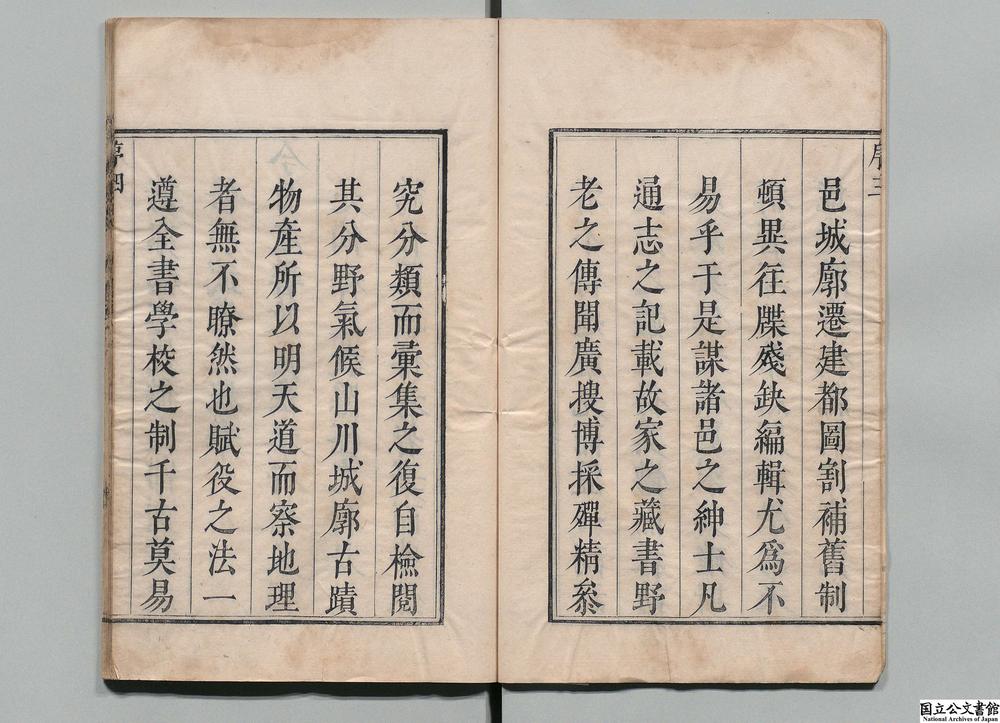 序三
邑城廓遷建都圖割補舊制
頓異往牒殘缺編輯尤爲不
易乎于是謀諸邑之紳士凡
通志之記載故家之藏書野
老之傳聞廣搜博採殫精叅
究分類而彙集之復自檢閱
其分野氣候山川城廓古蹟
物產所以明天道而察地理
者無不瞭然也賦役之法一
遵全書學校之制千古莫易
序四
国立公文書館
National Archives of Japan